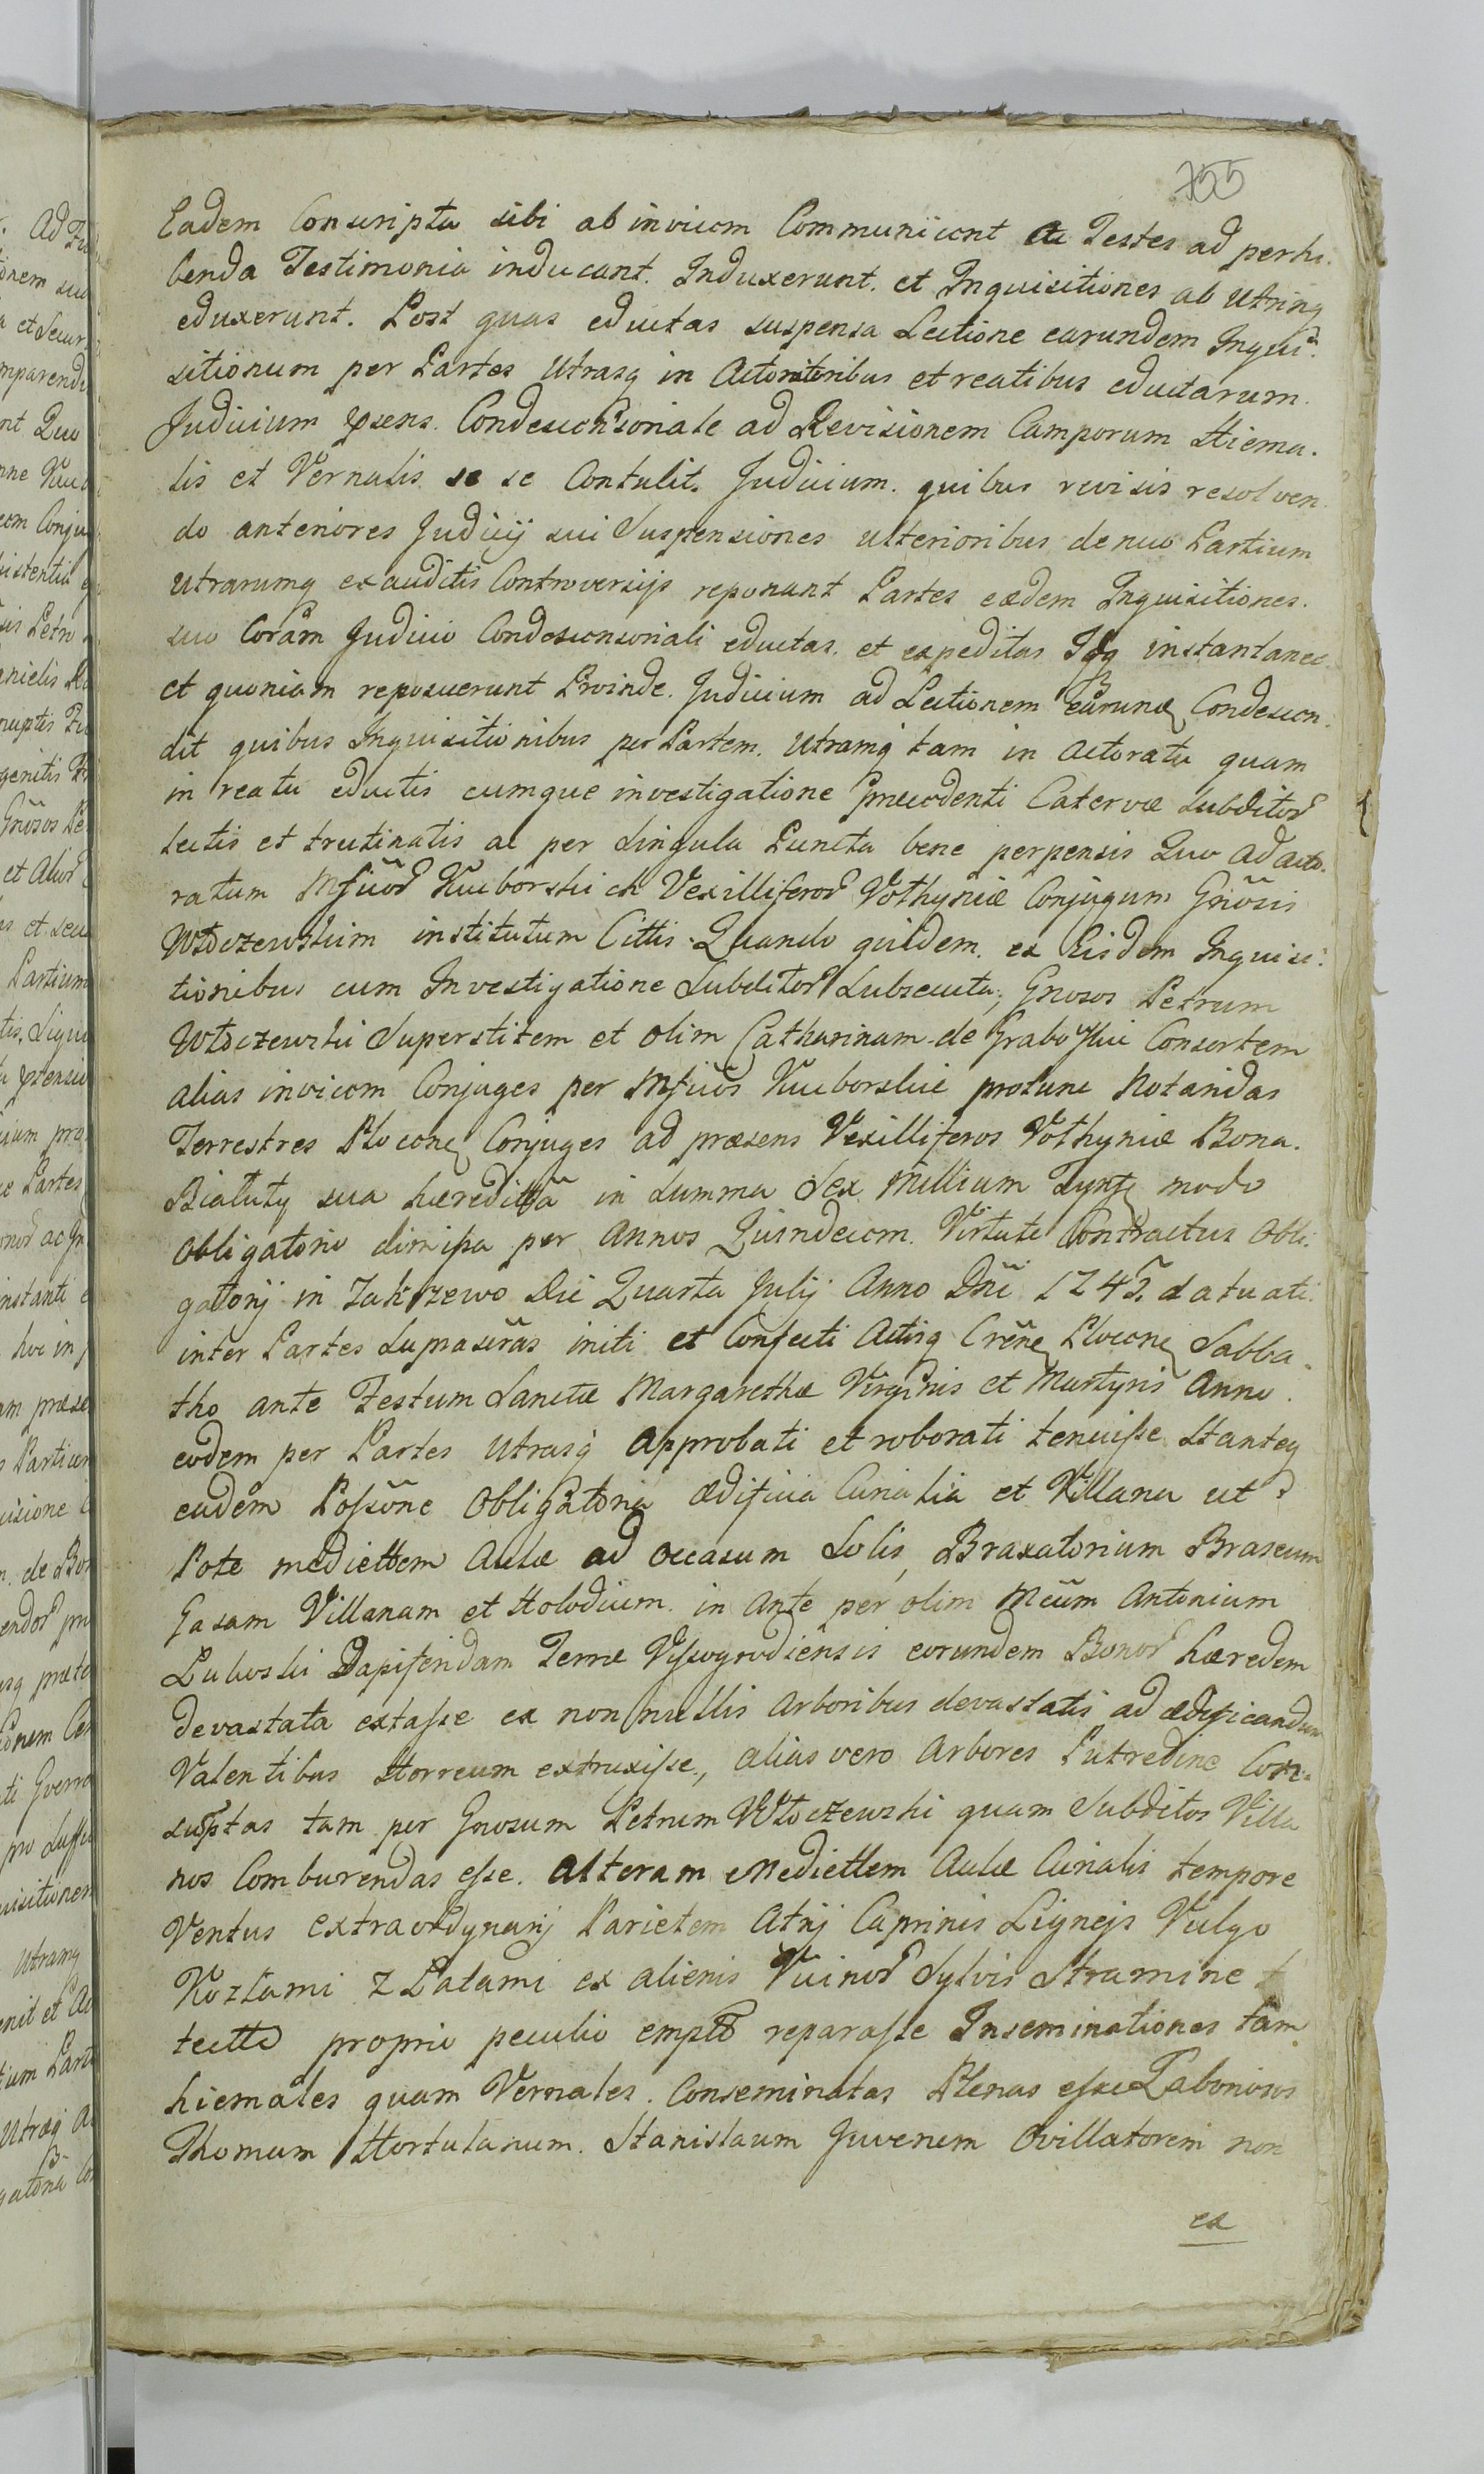 755
Eadem Conscripta sibi ab invicem Communicent ac Testes ad perhi-
benda Testimonia inducant. Induxerunt. et Inquisitiones ab Utrinq
eduxerunt. Post quas eductas suspensa Lectione earundem Inqui-
sitionum per Partes Utrasq in Actoratoribus et reatibus eductarum.
Judicium psens. Condescensoriale ad Revisionem Camporum Hiema-
lis et Vernalis se se Contulit. Judicium. quibus revisis resolven
do anteriores Judicij sui Suspensiones ulterioribus denuo Partium
Utrarumq exauditis Controversijs reponant Partes eædem Inquisitiones.
suo Coram Judicio Condescensoriali eductas. et expeditas Idq instantanee
et quoniam reposuerunt Proinde. Judicium ad Lectionem earund Condescen-
dit quibus Inquisitionibus per Partem. Utramq tam in actoratu quam
in reatu eductis cumque investigatione præcedenti Catervæ Subditor
lectis et trutinatis ac per Singula Puncta bene perpensis Quo ad acto-
ratum Mfcor Kuborskich Vexilliferor Volhyniæ Conjugum Gnosis
Włoczewskim institutum Cittis. Quando quidem. ex Eisdem Inquisi-
tionibus cum Investigatione Subditor Subsecuta, Gnosos Petrum
Włoczewski Superstitem et olim Catharinam de Grabowskie Consortem
alias invicem Conjuges per Mfcos Kuborskie protunc Notaridas
Terrestres Plocen Conjuges ad præsens Vexilliferos Volhyniæ Bona.
Białuty sua hæredittã in Summa Sex Millium Tynf modo
Obligatorio dimissa per Annos Quindecem. Virtute Contractus Obli-
gatorij in Zakrzewo Die Quarta Julij Anno Dni 1745. datuati
inter Partes Suprascras initi et Confecti Actisq Cren Plocen Sabba-
tho ante Festum Sanctæ Margarethæ Virginis et Martyris Anno.
eodem per Partes Utrasq Approbati et roborati tenuisse Stanteq
eadem Possone Obligatoria ædificia Curialia et Villana ut
Pote mediettem Aulæ ad Occasum Solis, Braxatorium Braseum
Casam Villanam et Holodium. in Ante per olim Mcum Antonium
Luboski Dapiferidam Terræ Vyssogrodiensis eorundem Bonor hæredem
devastata extasse ex nonnullis Arboribus devastatis ad ædificandum
Valentibus Horreum extruxisse, alias vero Arbores Putredine Con-
suptas tam per Gnosum Petrum Włoczewski quam Subditos Villa
nos Comburendas esse. Alteram Mediettem Aulæ Curialis tempore
Ventus Extraordynarij Parietem Atrij Caprinis Lignejs Vulgo
Kozłami z Łatami ex alienis Vicinor Sylvis Stramine
tectte proprio peculio empto reparasse Inseminationes tam
hiemales quam Vernales. Conseminatas Plenas esse Laboriosos
Thomam Hortulanum. Stanislaum Juvenem Ovillatorem non
ex